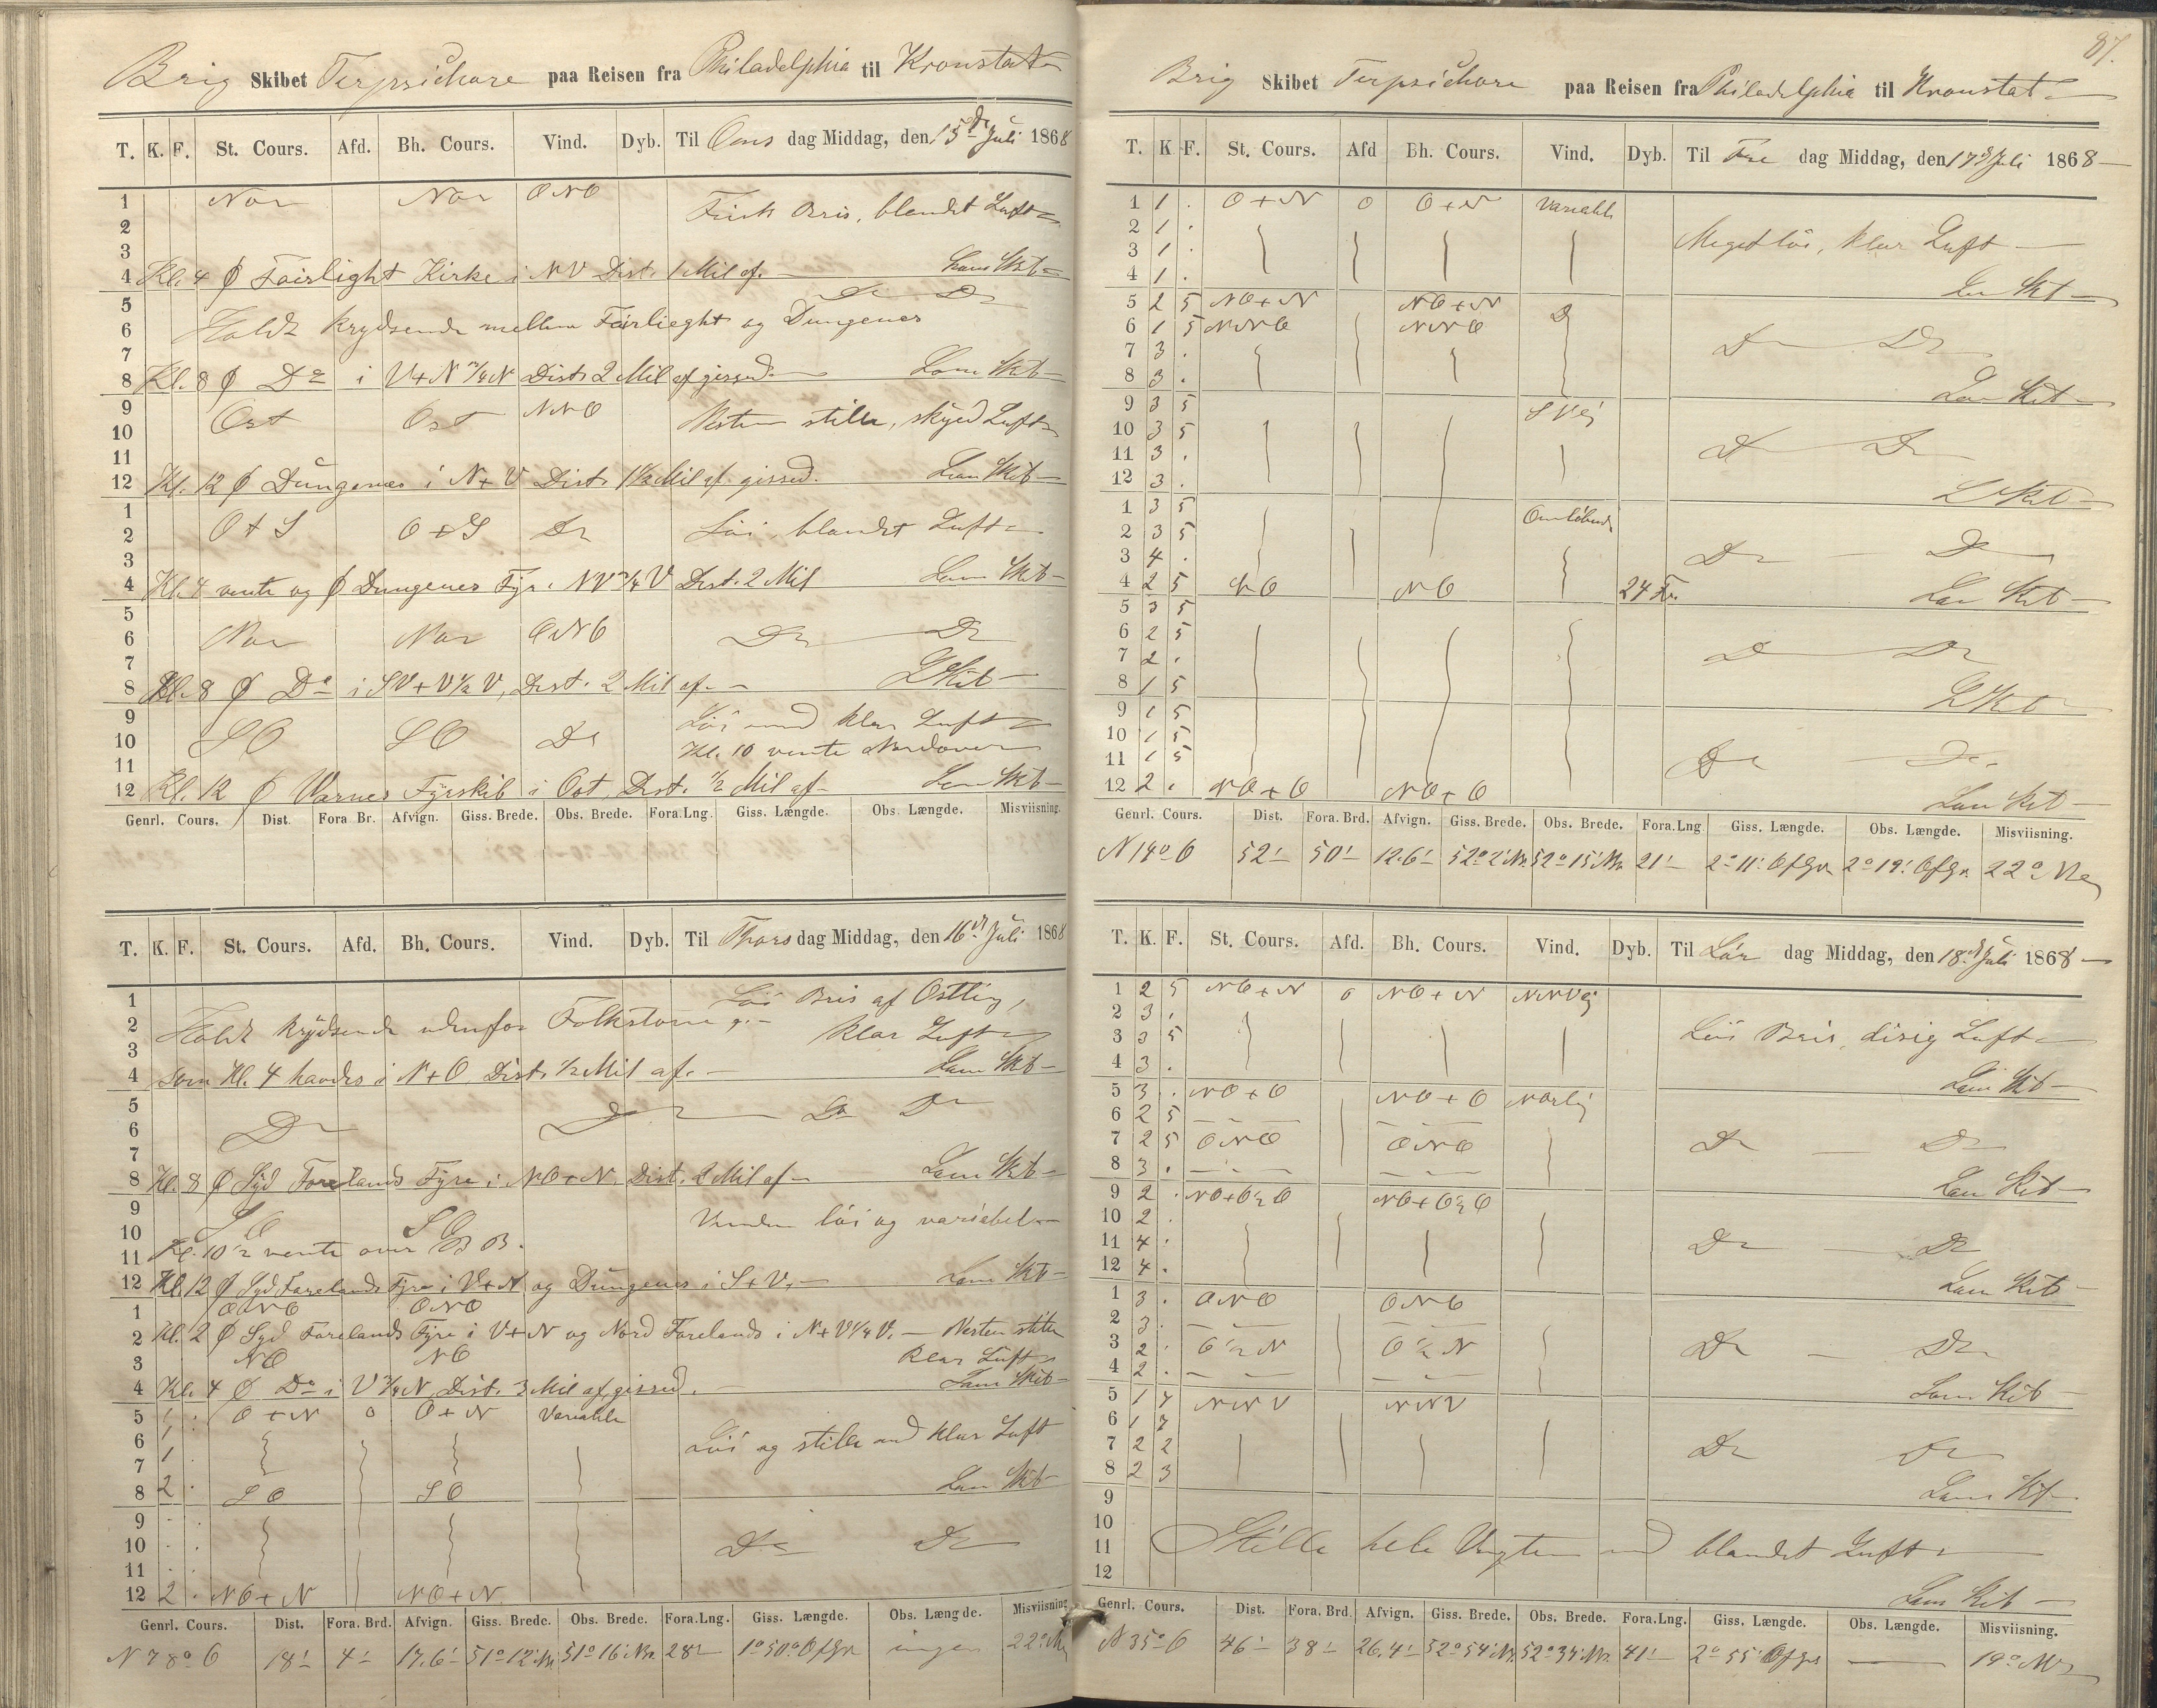 Brig Skibet Terpsichore paa Reisen fra Philadelphia til Kronstat
T. K. F. St. Cours. Afd. Bh. Cours. Vind. Dyb. Til Ons dag Middag, den 15de Juli 1868
1 Nor Nor ONO Frisk Bris, blandet Luft
2
3
4 Kl. 4 Fairlight Kirke i NV Dist. 1 Mil af. Lam Skib
5 Do Do
6 Holdt krydsende mellem Fairlieght og Dungenes
7
8 Kl. 8 Do i V+N 3/4 N Dist. 2 Mil af gissed. Lam Skib
9 Ost Ost NNO Nesten stille, skyed Luft
10
11
12 Kl. 12 Dungenes i N+V Dist. 1 1/2 Mil af gissed. Lam Skib
1
2 O+S O+S Do Löi, blandet Luft
3
4 Kl. 4 vente og Dungenes Fyr i NV 3/4 V Dist. 2 Mil Lam Skib
5
6 Nor Nor ONO Do Do
7
8 Kl. 8 Do i SV+V 1/2 V, Dist. 2 Mil af. L Skib
9 Löi med klar Luft
10 SO SO Do Kl. 10 vente Nordover
11
12 Kl. 12 Varnes Fyrskib i Ost, Dist. 1/2 Mil af Lam Skib
Genrl. Cours. Dist. Fora Br. Afvign. Giss. Brede. Obs. Brede. Fora.Lng. Giss. Længde. Obs. Længde. Misviisning.
T. K. F. St. Cours. Afd. Bh. Cours. Vind. Dyb. Til Thors dag Middag, den 16de Juli 1868
1 Löi Bris af Ostlig,
2 Holdt krydsende udenfor Folkstone klar Luft
3
4 som Kl. 4 havdes i N+O, Dist. 1/2 Mil af. Lam Skib
5 Do Do Do
6 Do
7
8 Kl. 8 Syd Forelands Fyre i NO+N. Dist. 2 Mil af Lam Skib
9
10 SO SO Vinden löi og variabel
11 Kl. 10 1/2 vente over BB.
12 Kl. 12 Syd Forelands Fyre i V+N og Dungenes i S+V. Lam Skib
1 ONO ONO
2 Kl. 2 Syd Forelands Fyre i V+N og Nord Forelands i N+V 1/4 V. Nesten stille
3 NO NO klar Luft
4 Kl. 4 Do i V 3/4 N, Dist. 3 Mil af gissed. Lam Skib
5 1 . O+N 0 O+N Variable
6 1 Löi og stille med klar Luft
7 1 .
8 2 . SO SO Lam Skib
9 . .
10 . . Do Do
11 . .
12 2 . NO+N NO+N
Genrl. Cours. Dist. Fora. Brd. Afvign. Giss. Brede. Obs. Brede. Fora.Lng. Giss. Længde. Obs. Længde. Misviisning
N 78° O 18' 4' 17.6' 51° 12' Nr. 51° 16' Nr. 28' 1° 50' O f Gr ingen 22° Ne
87.
Brig Skibet Terpsichore paa Reisen fra Philadelphia til Kronstat
T. K F. St. Cours. Afd Bh. Cours. Vind. Dyb. Til Fre dag Middag, den 17de Juli 1868
1 1 . O+N 0 O+N Variable
2 1 . Meget löi, klar Luft
3 1 .
4 1 . Lam Skib
5 2 5 NO+N NO+N Do
6 1 5 NNO NNO
7 3 . Do Do
8 3 . Lam Skib
9 3 5 S Vlj
10 3 5
11 3 . Do Do
12 3 . L Skib
1 3 5 Omlöbende
2 3 5
3 4 . Do Do
4 2 5 NO NO 24 Fv. Lam Skib
5 3 5
6 2 5
7 2 . Do Do
8 1 5 L Skib
9 1 5
10 1 5
11 1 5 Do Do
12 2 . NO+O NO+O Lam Skib
Genrl. Cours. Dist. Fora. Brd. Afvign. Giss. Brede. Obs. Brede. Fora.Lng Giss. Længde. Obs. Længde. Misviisning.
N 14° O 52' 50' 12.6' 52° 2' Nr. 52° 15' Nr. 21' 2° 11' O f Gr. 2° 19' O f Gr. 22° Ne
T. K. F. St. Cours. Afd. Bh. Cours. Vind. Dyb. Til Lör dag Middag, den 18de Juli 1868
1 2 5 NO+N 0 NO+N NNVlj
2 3 .
3 3 5 Löi Bris, disig Luft
4 3 . Lam Skib
5 3 . NO+O NO+O Norlig
6 2 5
7 2 5 ONO ONO Do Do
8 3 . Lam Skib
9 2 . NO+O 1/2 O NO+O 1/2 O
10 2 .
11 4 . Do Do
12 4 . Lam Skib
1 3 . ONO ONO
2 3 .
3 2 . O 1/2 N O 1/2 N Do Do
4 2 . Lam Skib
5 1 7 NNV NNV
6 1 7
7 2 2 Do Do
8 2 3 Lam Skib
9
10
11 Stille hele Vagten med blandet Luft
12 Lam Skib
Genrl. Cours. Dist. Fora. Brd. Afvign. Giss. Brede. Obs. Brede. Fora.Lng. Giss. Længde. Obs. Længde. Misviisning.
N 35° O 46' 38' 26.4' 52° 54' Nr. 52° 34' Nr. 41' 2° 55' O f Gr 19° Nv